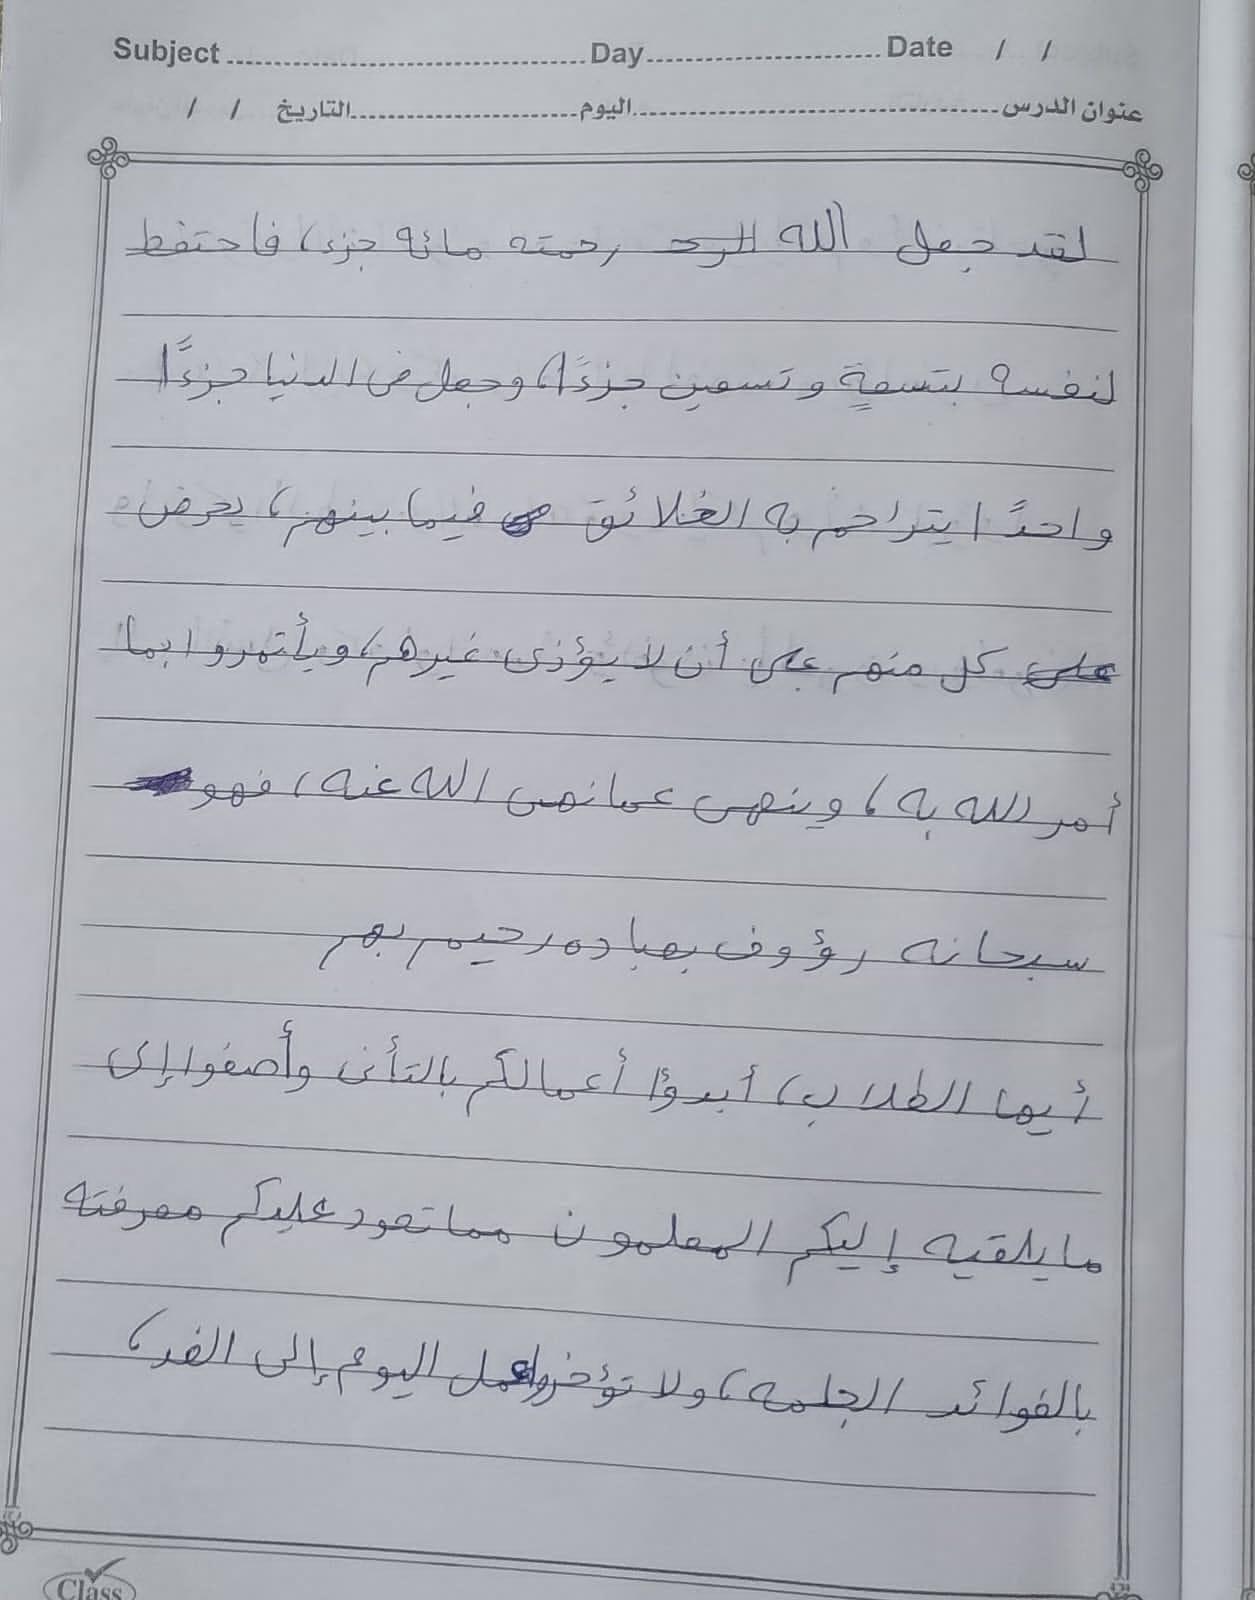 Subject Day Date / /
عنوان الدرس اليوم التاريخ / /
لقد جعل الله الرحـ رحمته مائه جزء، فاحتفظ
لنفسه بتسعةٍ وتسعين جزءًا، وجعل فى الدنيا جزءًا
واحدًا يتراحم به الخلائق فيما بينهم، يحرص
على كل منهم على أن لا يؤذى غيرهم، ويأتمروا بما
أمر الله به، وينهى عما نهى الله عنه، فهو
سبحانه رؤوف بعباده رحيم بهم
أيها الطلاب، أبدؤا أعمالكم بالتأنى وأصغوا إلى
ما يلقيه إليكم المعلمون مما تعود عليكم معرفته
بالفوائد الجلمه، ولا تؤخروا عمل اليوم إلى الغد،
Class